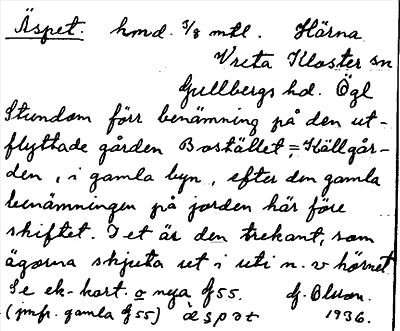 Äspet. hmd. 3/8 mtl. Härna
Vreta Kloster sn
Gullbergs hd. Ögl
Stundom förr benämning på den ut-
flyttade gården Bostället, = Källgår-
den, i gamla byn, efter den gamla
benämningen på jorden här före
skiftet. Det är den trekant, som
ägorna skjuta ut i uti n. v hörnet
Se ek-kart. o nya f 55.
(jmfr. gamla f 55) äspət 1936.